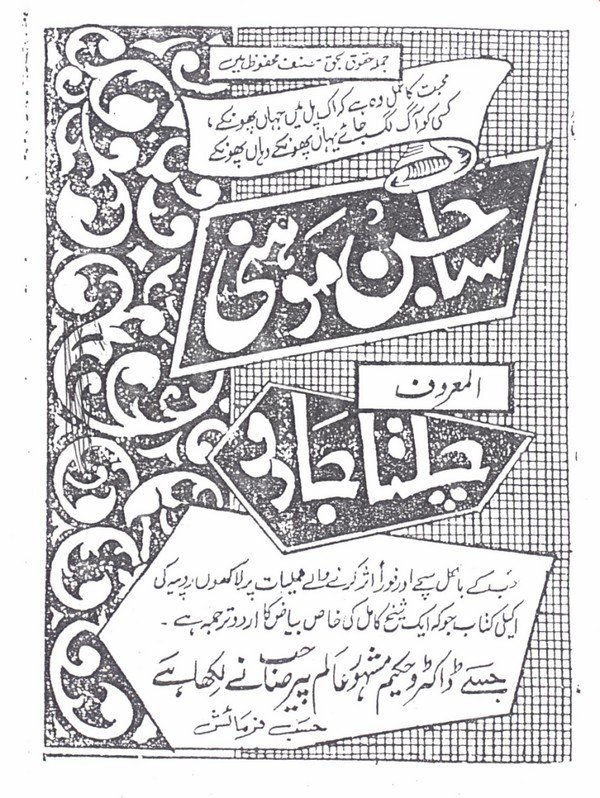 جملہ حقوق بحق مصنف محفوظ ہیں
محبت کا عمل وہ ہے کہ اک پل میں جہاں پھونکے،
کسی کو آگ لگ جائے یہاں پھونکے وہاں پھونکے
ساجن موہنی
المعروف
چلتا جادو
کے بالکل سچے اور فوراً اثر کرنے والے عملیات پر لاکھوں روپیہ کی
اکیلی کتاب جو کہ ایک شیخ کامل کی خاص بیاض کا اردو ترجمہ ہے۔
جسے ڈاکٹر و حکیم مشہور عالم پیر صاحب نے لکھا ہے
حسب فرمائش